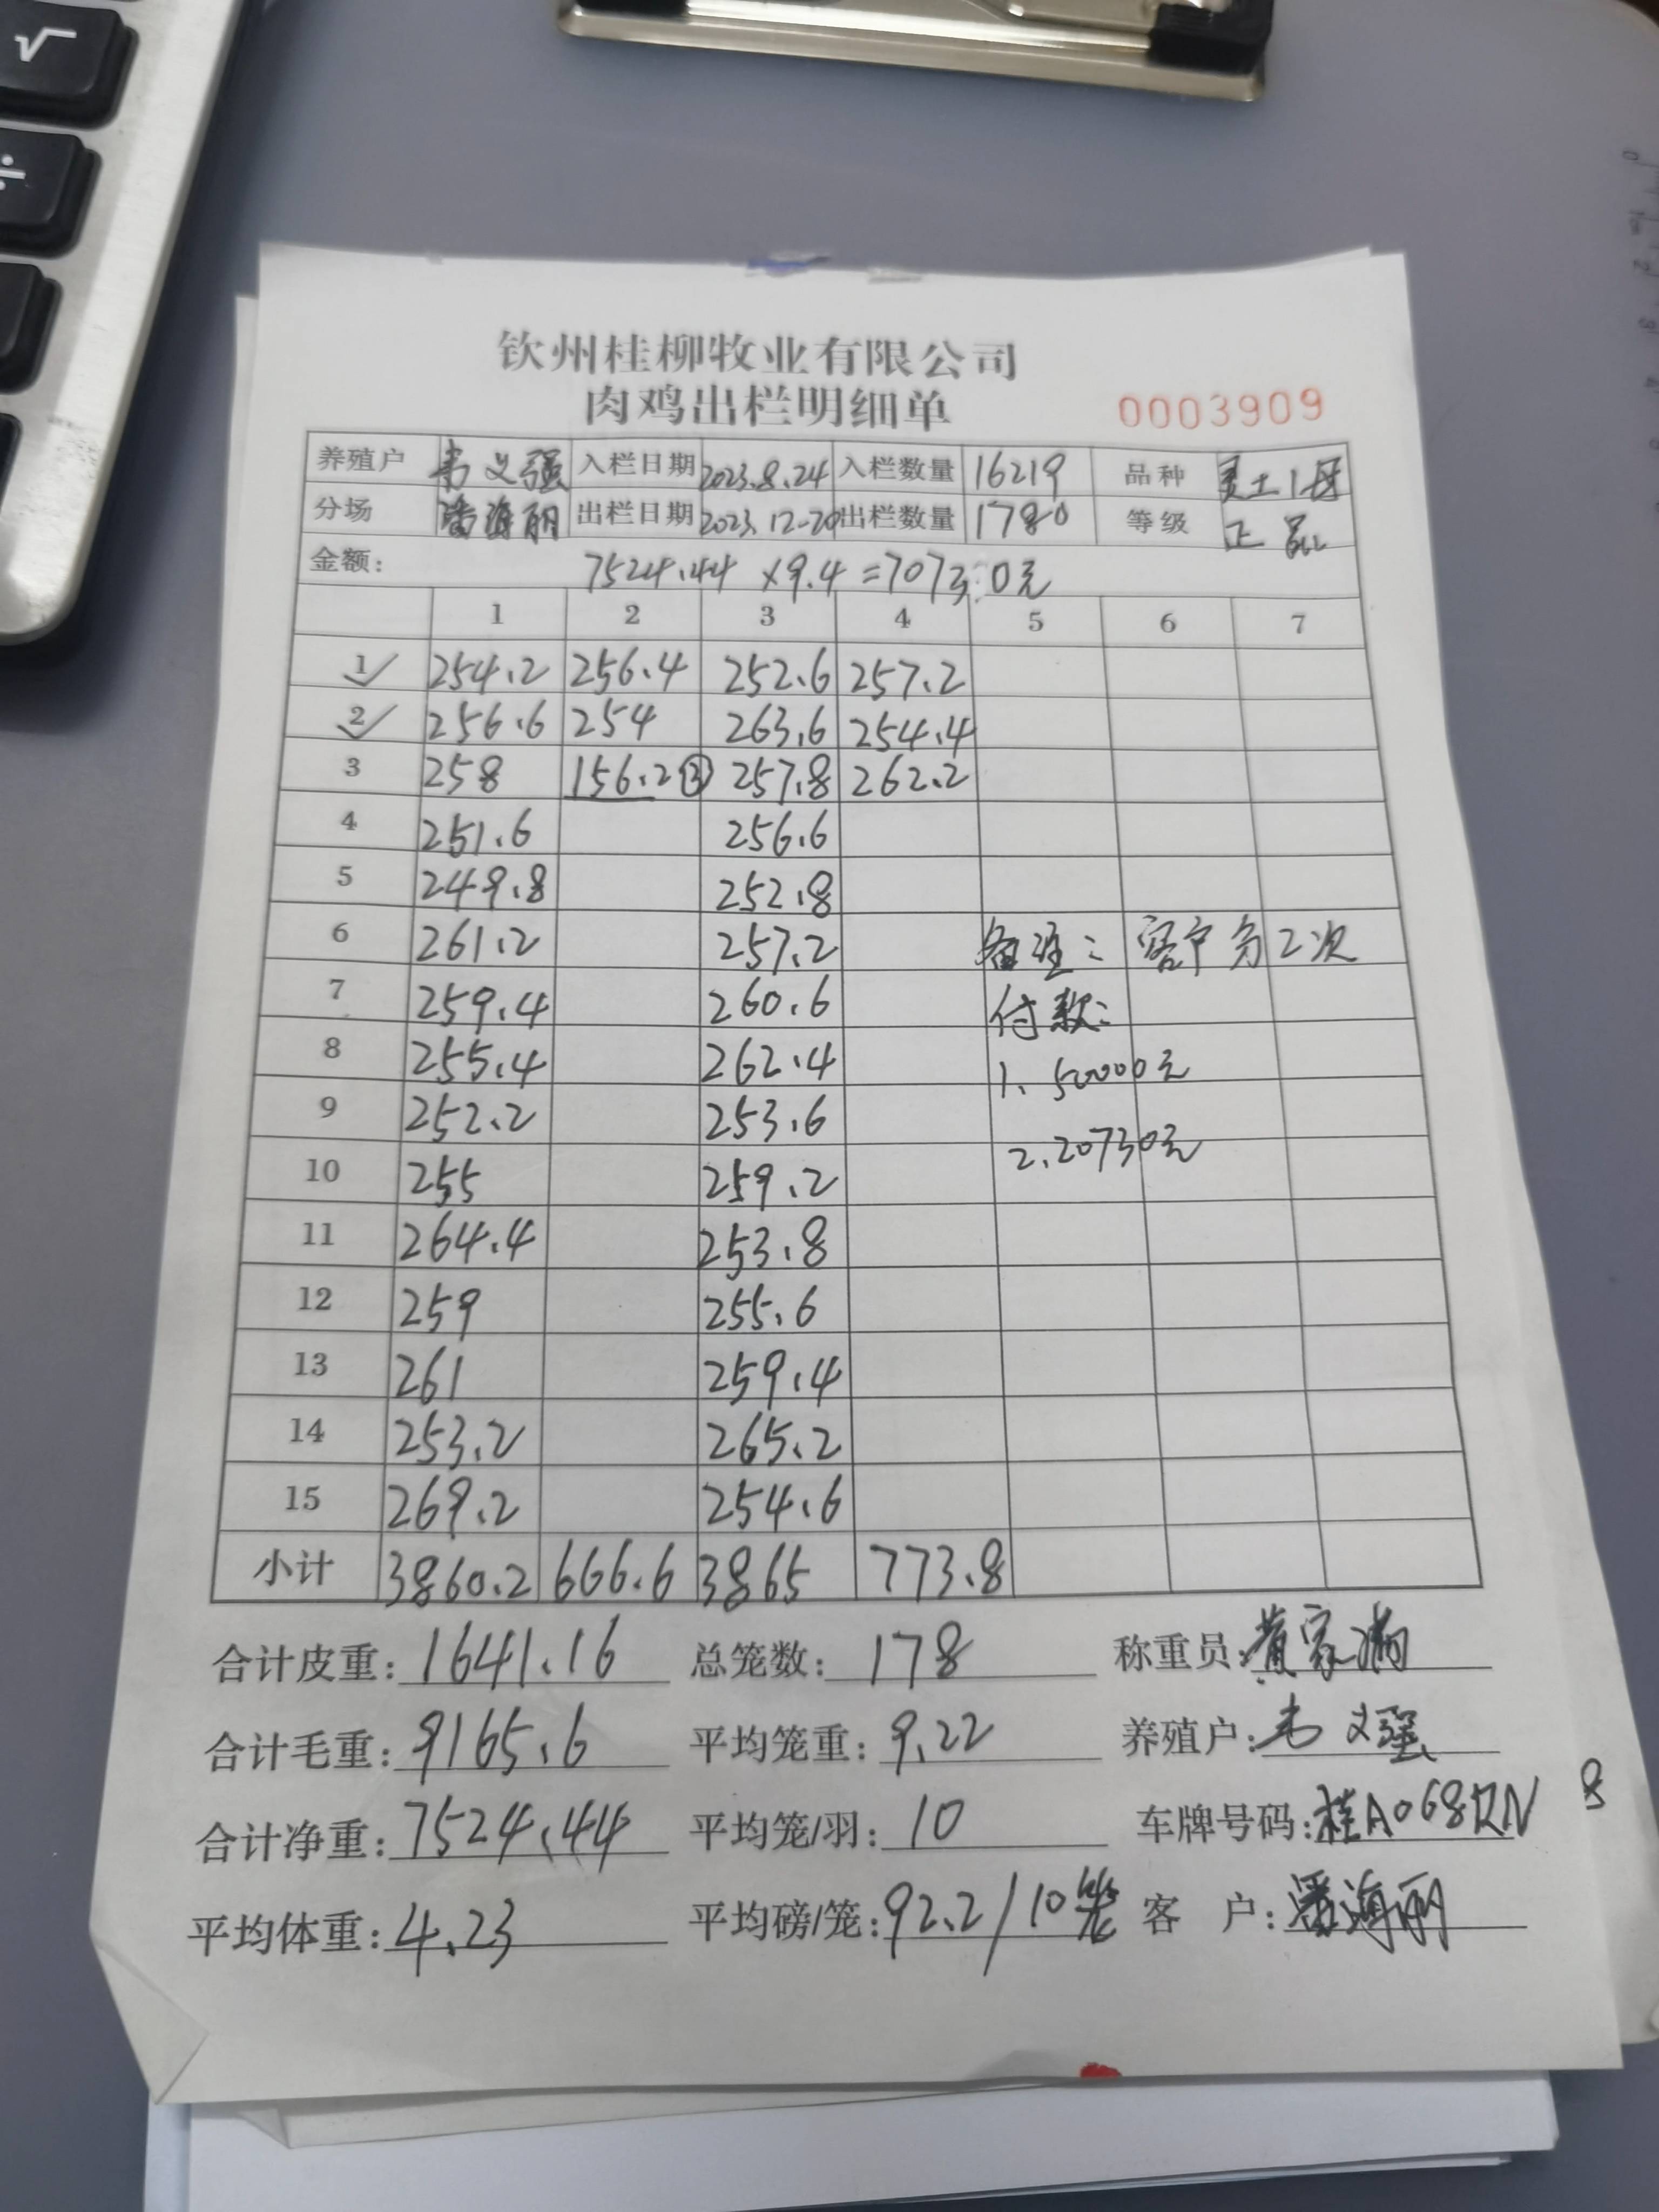 钦州桂柳牧业有限公司
肉鸡出栏明细单 0003909
养殖户 韦义强 入栏日期 2023.8.24 入栏数量 16219 品种 灵土1母
分场 潘海丽 出栏日期 2023.12-20 出栏数量 1780 等级 正品
金额: 7524.44 ×9.4=70730元
1 2 3 4 5 6 7
1 254.2 256.4 252.6 257.2
2 256.6 254 263.6 254.4
3 258 156.2③ 257.8 262.2
4 251.6 256.6
5 249.8 252.8
6 261.2 257.2 备注: 客户分2次
7 259.4 260.6 付款:
8 255.4 262.4 1、50000元
9 252.2 253.6
10 255 259.2 2、20730元
11 264.4 253.8
12 259 255.6
13 261 259.4
14 253.2 265.2
15 269.2 254.6
小计 3860.2 666.6 3865 773.8
合计皮重: 1641.16 总笼数: 178 称重员: 黄家满
合计毛重: 9165.6 平均笼重: 9.22 养殖户: 韦义强
合计净重: 7524.44 平均笼/羽: 10 车牌号码: 桂A068RN 8
平均体重: 4.23 平均磅/笼: 92.2/10笼 客 户: 潘海丽
√
÷